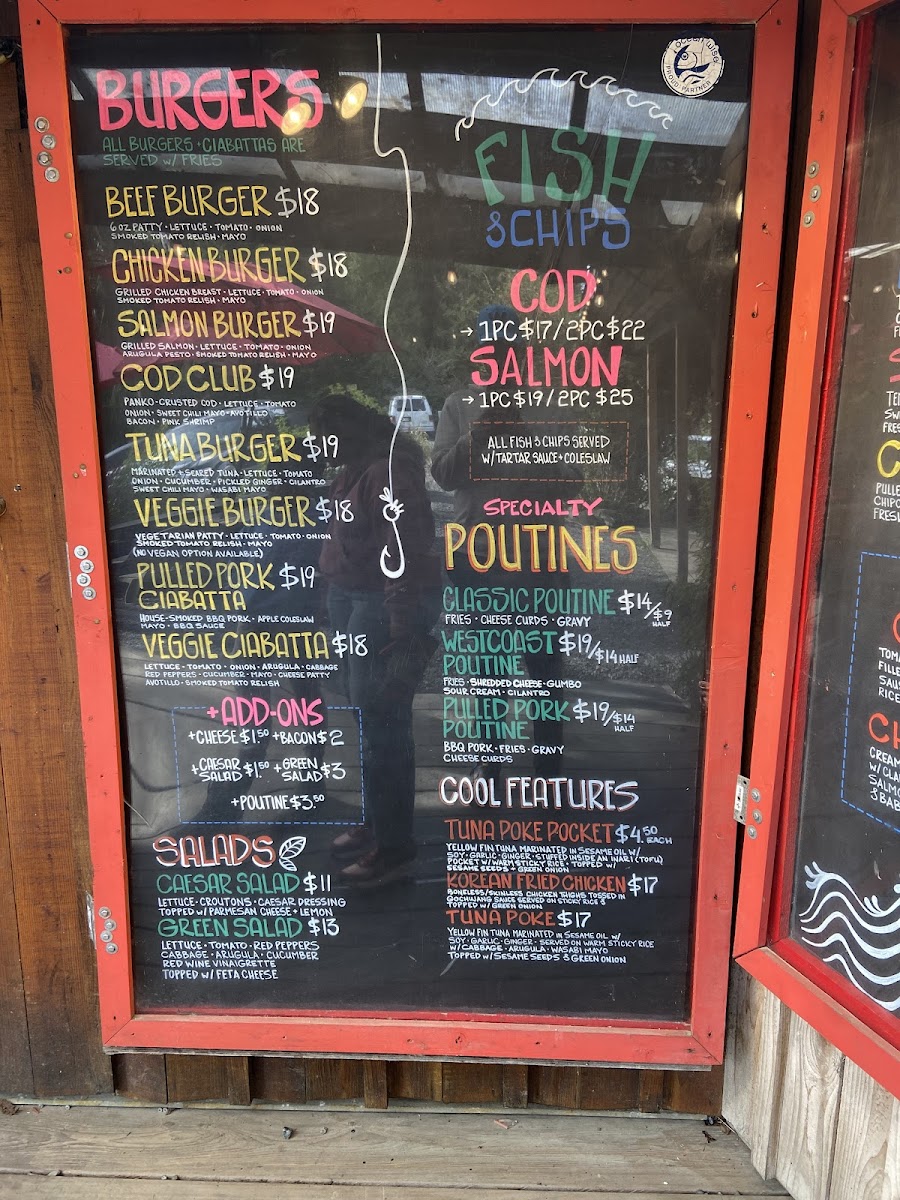 BURGERS
ALL BURGERS · CIABATTAS ARE
SERVED W/ FRIES
BEEF BURGER $18
6 OZ PATTY · LETTUCE · TOMATO · ONION
SMOKED TOMATO RELISH · MAYO
CHICKEN BURGER $18
GRILLED CHICKEN BREAST · LETTUCE · TOMATO · ONION
SMOKED TOMATO RELISH · MAYO
SALMON BURGER $19
GRILLED SALMON · LETTUCE · TOMATO · ONION
ARUGULA PESTO · SMOKED TOMATO RELISH · MAYO
COD CLUB $19
PANKO-CRUSTED COD · LETTUCE · TOMATO
ONION · SWEET CHILI MAYO · AVOTILLO
BACON · PINK SHRIMP
TUNA BURGER $19
MARINATED + SEARED TUNA · LETTUCE · TOMATO
ONION · CUCUMBER · PICKLED GINGER · CILANTRO
SWEET CHILI MAYO · WASABI MAYO
VEGGIE BURGER $18
VEGETARIAN PATTY · LETTUCE · TOMATO · ONION
SMOKED TOMATO RELISH · MAYO
(NO VEGAN OPTION AVAILABLE)
PULLED PORK $19
CIABATTA
HOUSE-SMOKED BBQ PORK · APPLE COLESLAW
MAYO · BBQ SAUCE
VEGGIE CIABATTA $18
LETTUCE · TOMATO · ONION · ARUGULA · CABBAGE
RED PEPPERS · CUCUMBER · MAYO · CHEESE PATTY
AVOTILLO · SMOKED TOMATO RELISH
+ADD-ONS
+CHEESE $1.50 +BACON $2
+CAESAR SALAD $1.50 +GREEN SALAD $3
+POUTINE $3.50
SALADS
CAESAR SALAD $11
LETTUCE · CROUTONS · CAESAR DRESSING
TOPPED W/ PARMESAN CHEESE + LEMON
GREEN SALAD $13
LETTUCE · TOMATO · RED PEPPERS
CABBAGE · ARUGULA · CUCUMBER
RED WINE VINAIGRETTE
TOPPED W/ FETA CHEESE
OCEAN WISE
PROUD PARTNER
FISH
& CHIPS
COD
→ 1PC $17 / 2PC $22
SALMON
→ 1PC $19 / 2PC $25
ALL FISH & CHIPS SERVED
W/ TARTAR SAUCE + COLESLAW
SPECIALTY
POUTINES
CLASSIC POUTINE $14/$9 HALF
FRIES · CHEESE CURDS · GRAVY
WESTCOAST $19/$14 HALF
POUTINE
FRIES · SHREDDED CHEESE · GUMBO
SOUR CREAM · CILANTRO
PULLED PORK $19/$14 HALF
POUTINE
BBQ PORK · FRIES · GRAVY
CHEESE CURDS
COOL FEATURES
TUNA POKE POCKET $4.50 EACH
YELLOW FIN TUNA MARINATED IN SESAME OIL W/
SOY · GARLIC · GINGER · STUFFED INSIDE AN INARI (TOFU)
POCKET W/ WARM STICKY RICE · TOPPED W/
SESAME SEEDS + GREEN ONION
KOREAN FRIED CHICKEN $17
BONELESS/SKINLESS CHICKEN THIGHS TOSSED IN
GOCHUJANG SAUCE SERVED ON STICKY RICE &
TOPPED W/ GREEN ONION
TUNA POKE $17
YELLOW FIN TUNA MARINATED IN SESAME OIL W/
SOY · GARLIC · GINGER · SERVED ON WARM STICKY RICE
W/ CABBAGE · ARUGULA · WASABI MAYO
TOPPED W/ SESAME SEEDS & GREEN ONION